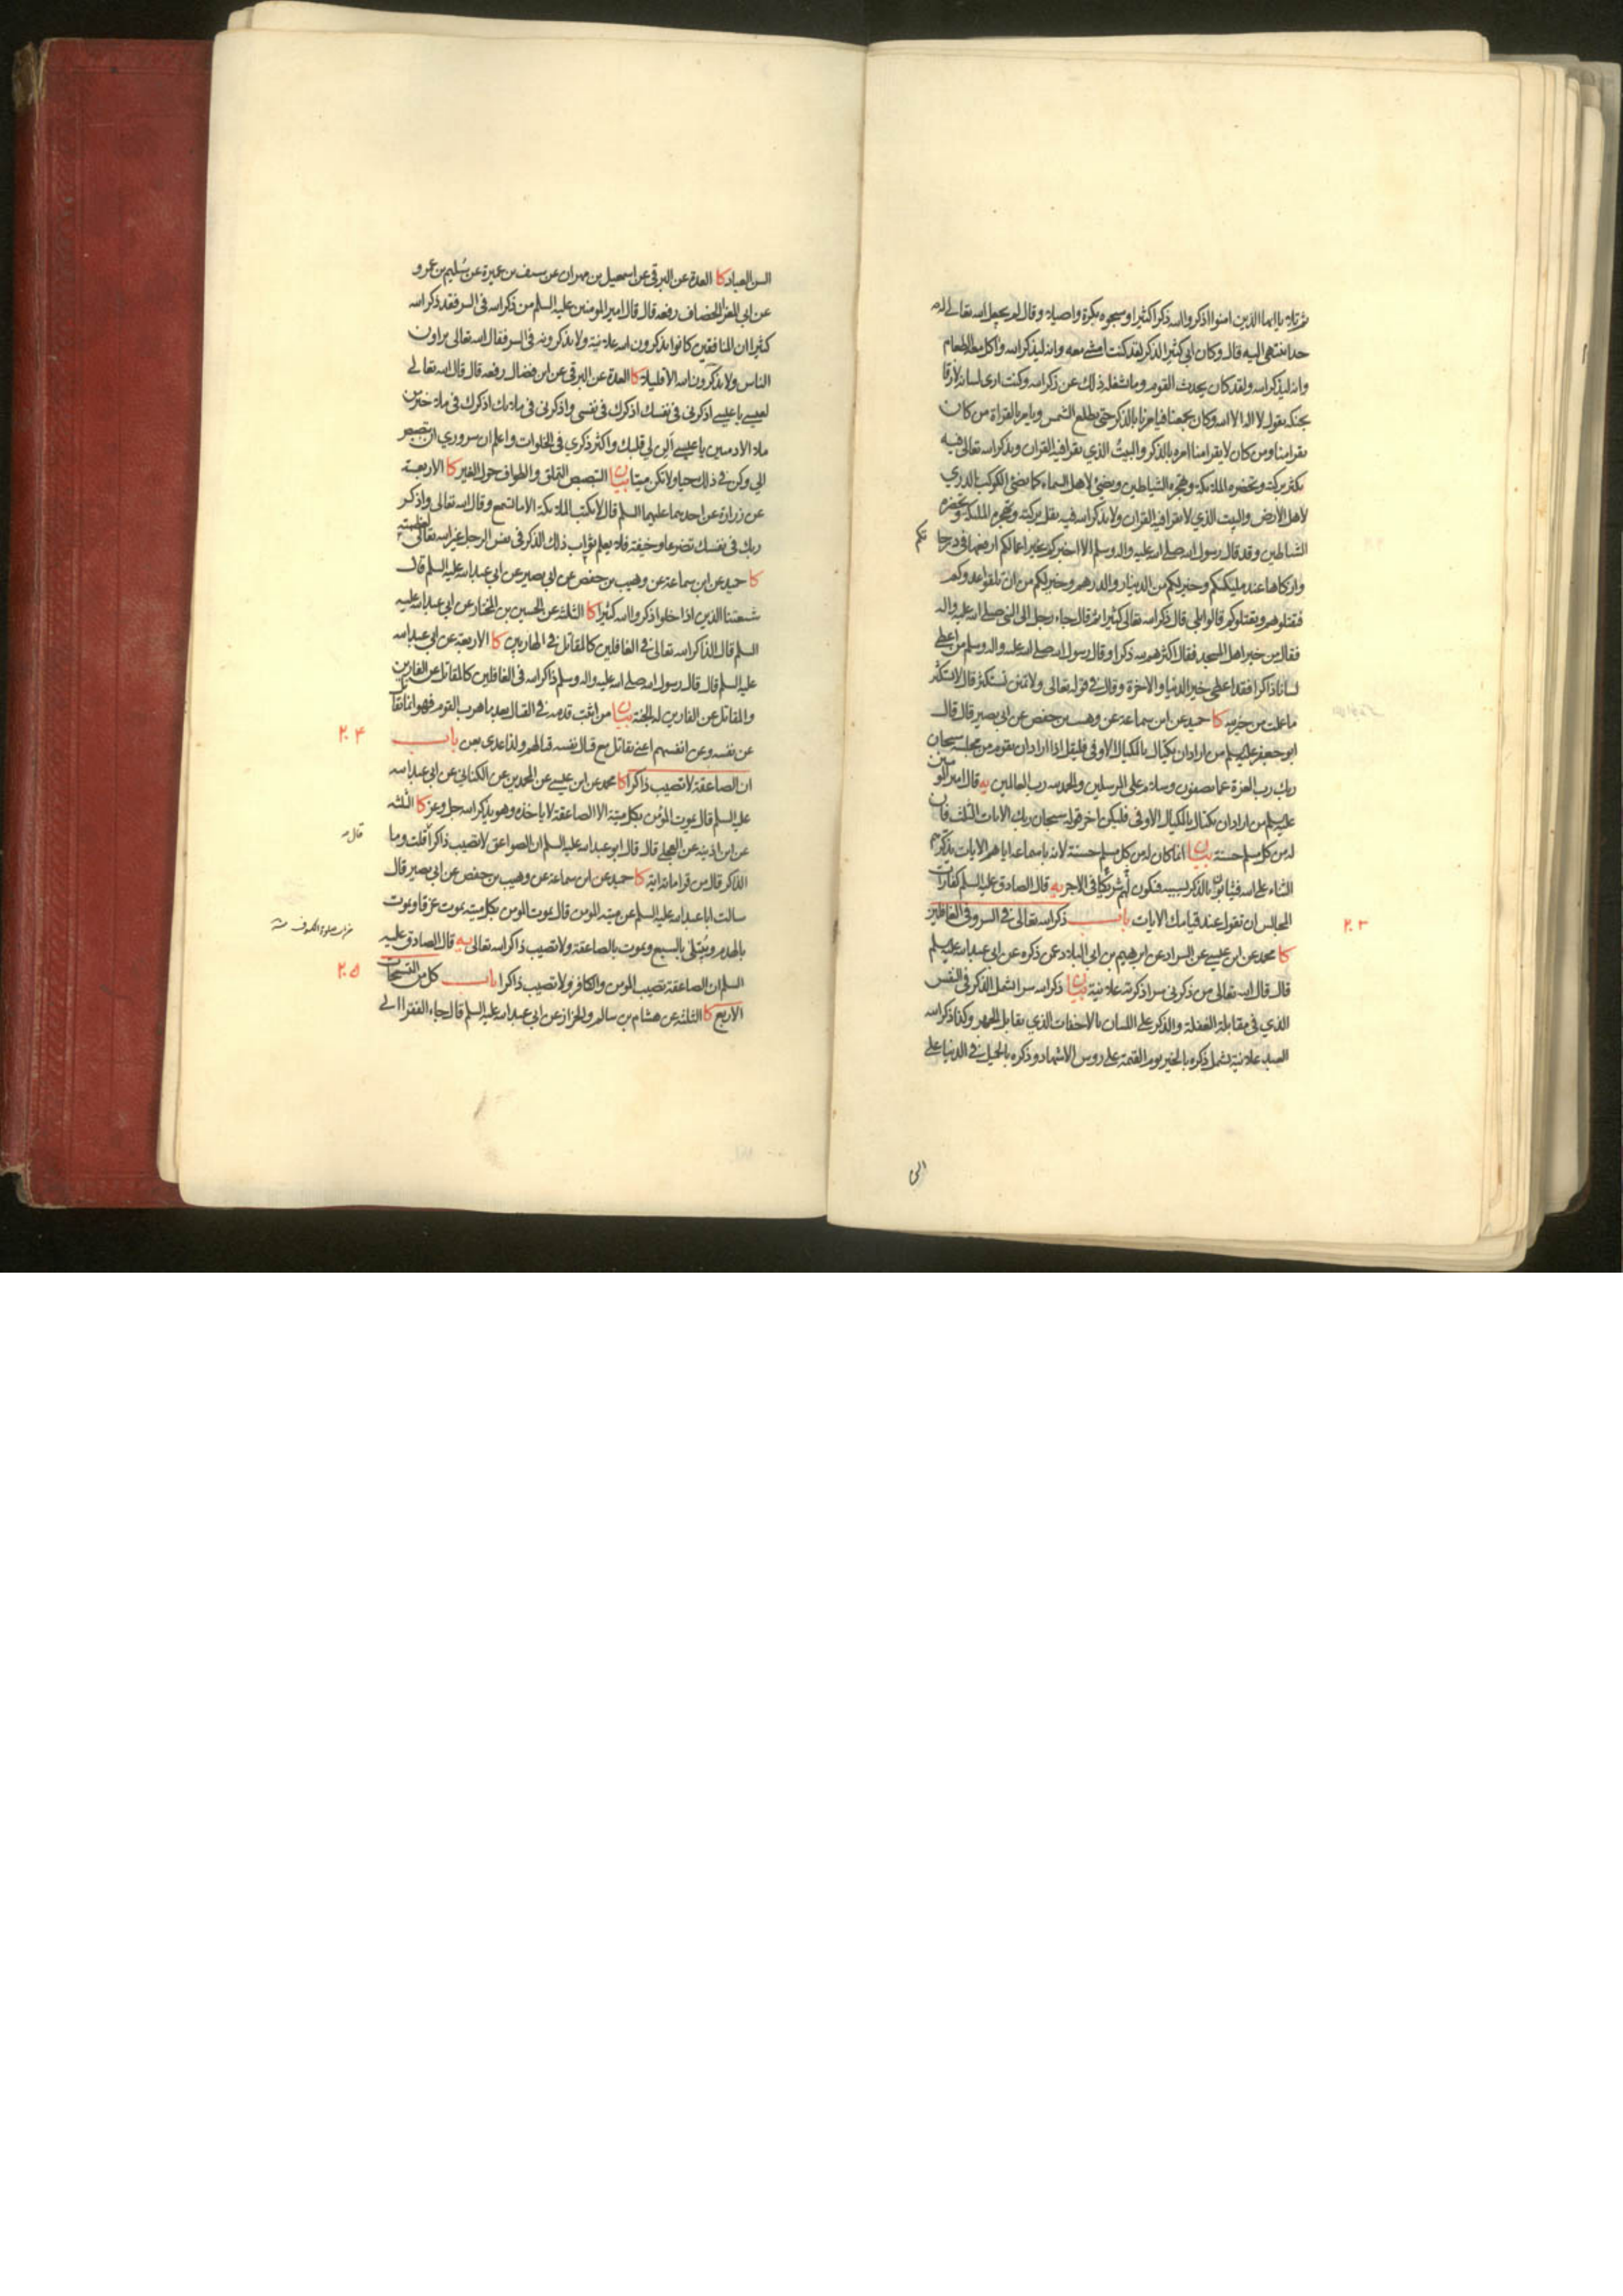 ثم تلا يا ايها الذين امنوا اذكروا الله ذكرا كثيرا وسبحوه بكرة واصيلا وقال لم يجعل الله تعالى له
حدا ينتهى اليه قال وكان ابي كثير الذكر لقد كنت امشي معه وانه ليذكر الله واكل معه الطعام
وانه ليذكر الله ولقد كان يحدث القوم وما يشغله ذلك عن ذكر الله وكنت ارى لسانه لازقا
بحنكه يقول لا اله الا الله وكان يجمعنا فيامرنا بالذكر حتى يطلع الشمس ويامر بالقراة من كان
يقرا منا ومن كان لا يقرا منا امره بالذكر والبيت الذي يقرا فيه القران ويذكر الله تعالى فيه
يكثر بركته وتحضره الملائكة وتهجره الشياطين ويضئ لاهل السماء كما يضئ الكوكب الدري
لاهل الارض والبيت الذي لا يقرا فيه القران ولا يذكر الله فيه يقل بركته وتهجره الملئكة وتحضره
الشياطين وقد قال رسول الله صلى الله عليه واله وسلم الا اخبركم بخير اعمالكم ارفعها في درجا
تكم
وازكاها عند مليككم وخير لكم من الدينار والدرهم وخير لكم من ان تلقوا عدوكم
فتقتلوهم ويقتلوكم قالوا بلى قال ذكر الله تعالى كثيرا ثم قال جاء رجل الى النبي صلى الله عليه واله
فقال من خير اهل المسجد فقال اكثرهم لله ذكرا وقال رسول الله صلى الله عليه واله وسلم من اعطي
لسانا ذاكرا فقد اعطي خير الدنيا والاخرة وقال في قوله تعالى ولا تمنن تستكثر قال لا تستكثر
ما عملت من خير لله كا حميد عن ابن سماعة عن وهيب بن حفص عن ابي بصير قال قال
ابو جعفر عليه السلم من اراد ان يكتال بالمكيال الاوفى فليقل اذا اراد ان يقوم من مجلسه سبحان
ربك رب العزة عما يصفون وسلام على المرسلين والحمد لله رب العالمين يه قال امير المومنين
عليه السلم من اراد ان يكتال بالمكيال الاوفى فليكن اخر قوله سبحان ربك الايات الثلث فان
له من كل مسلم حسنة بيان انما كان له من كل مسلم حسنة لانه باسماعه اياهم الايات يذكرهم
الثناء على الله فيثابون بالذكر بسببه فتكون لهم شريكا في الاجر يه قال الصادق عليه السلم كفارات
المجالس ان تقول عند قيامك الايات باب ذكر الله تعالى في السر وفي الغافلين
٢٠٣
كا محمد عن ابن عيسى عن السراد عن ابرهيم بن ابي البلاد عمن ذكره عن ابي عبد الله عليه السلم
قال قال الله تعالى من ذكرني سرا ذكرته علانية بيان ذكر الله سرا يشمل الذكر في النفس
الذي في مقابلة الغفلة والذكر على اللسان بالاخفات الذي يقابل الجهر وكذا ذكر الله
العبد علانية يشمل ذكره بالخير يوم القيمة على روس الاشهاد وذكره بالجميل في الدنيا على
الس
السن العباد كا العدة عن البرقي عن اسمعيل بن مهران عن سيف بن عميرة عن سليم بن عمرو
عن ابي المغرا الخصاف رفعه قال قال امير المومنين عليه السلم من ذكر الله في السر فقد ذكر الله
كثيرا ان المنافقين كانوا يذكرون الله علانية ولا يذكرونه في السر فقال الله تعالى يراون
الناس ولا يذكرون الله الا قليلا كا العدة عن البرقي عن ابن فضال رفعه قال قال الله تعالى
لعيسى يا عيسى اذكرني في نفسك اذكرك في نفسي واذكرني في ملائك اذكرك في ملا خير من
ملا الادميين يا عيسى الن لي قلبك واكثر ذكري في الخلوات واعلم ان سروري ان تبصبص
الي وكن في ذلك حيا ولا تكن ميتا بيان التبصبص التملق والطواف حول الغير كا الاربعة
عن زرارة عن احدهما عليهما السلم قال لا يكتب الملائكة الا ما تسمع وقال الله تعالى واذكر
ربك في نفسك تضرعا وخيفة فلا يعلم ثواب ذلك الذكر في نفس الرجل غير الله تعالى لعظمته
كا حميد عن ابن سماعة عن وهيب بن حفص عن ابي بصير عن ابي عبد الله عليه السلم قال
شيعتنا الذين اذا خلوا ذكروا الله كثيرا كا الثلثة عن الحسين بن المختار عن ابي عبد الله عليه
السلم قال الذاكر لله تعالى في الغافلين كالمقاتل في الهاربين كا الاربعة عن ابي عبد الله
عليه السلم قال قال رسول الله صلى الله عليه واله وسلم ذاكر الله في الغافلين كالمقاتل عن الفارين
والمقاتل عن الفارين له الجنة بيان من اثبت قدمه في القتال بعد ما هرب القوم فهو انما يقاتل
عن نفسه وعن انفسهم اعني يقاتل مع قتال نفسه قتالهم ولذا عدي بعن باب
٢٠٤
ان الصاعقة لا تصيب ذاكرا كا محمد عن ابن عيسى عن المحمدين عن الكناني عن ابي عبد الله
عليه السلم قال يموت المؤمن بكل ميتة الا الصاعقة لا ياخذه وهو يذكر الله جل وعز كا الثلثة
عن ابن اذينة عن البجلي قال قال ابو عبد الله عليه السلم ان الصواعق لا تصيب ذاكرا قلت وما
قال
الذاكر قال من قرا مائة اية كا حميد عن ابن سماعة عن وهيب بن حفص عن ابي بصير قال
سالت ابا عبد الله عليه السلم عن ميتة المومن قال يموت المومن بكل ميتة يموت غرقا ويموت
بالهدم ويبتلى بالسبع ويموت بالصاعقة ولا تصيب ذاكر الله تعالى يه قال الصادق عليه
السلم ان الصاعقة تصيب المومن والكافر ولا تصيب ذاكرا باب كل من التسبيحات
٢٠٥
الاربع كا الثلثة عن هشام بن سالم والخزاز عن ابي عبد الله عليه السلم قال جاء الفقرا الى